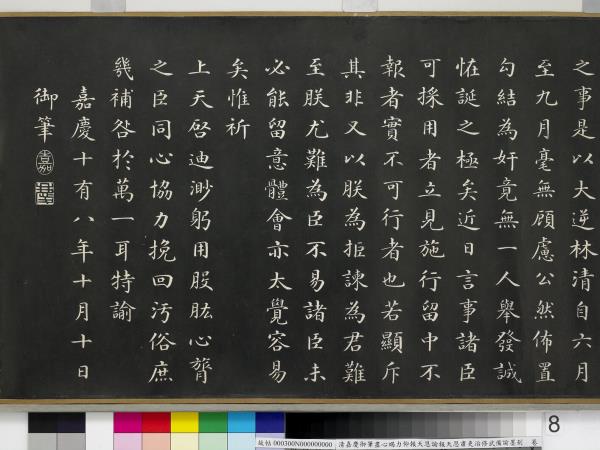 之事是以大逆林清自六月
至九月毫無顧慮公然佈置
勾結為奸竟無一人舉發誠
恠誕之極矣近日言事諸臣
可採用者立見施行留中不
報者實不可行者也若顯斥
其非又以朕為拒諫為君難
至朕尤難為臣不易諸臣未
必能留意體會亦太覺容易
矣惟祈
上天啓迪渺躬用股肱心膂
之臣同心協力挽回汚俗庶
幾補咎於萬一耳特諭
嘉慶十有八年十月十日
御筆
8
故帖 000300N000000000 清嘉慶御筆盡心竭力仰報天恩諭